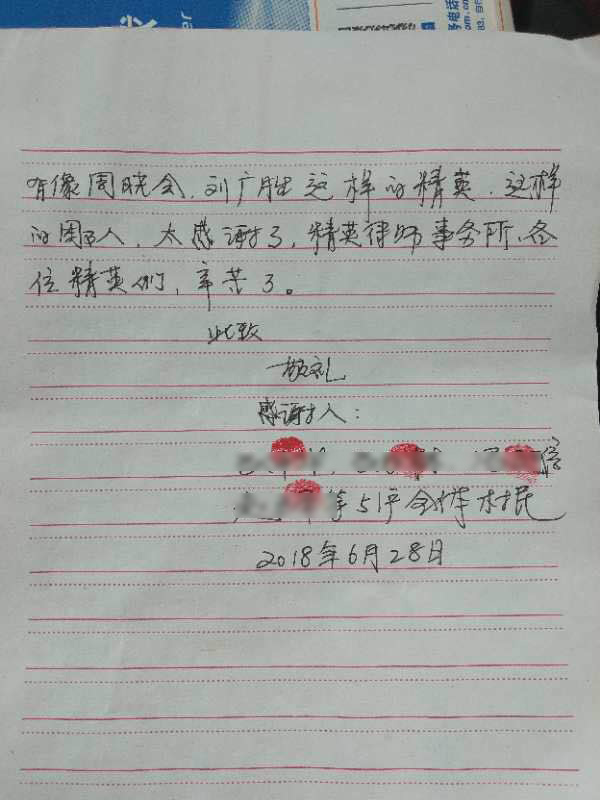 有像周晓会、刘广胜这样的精英、这样
的国人、太感谢了，精英律师事务所、各
位精英们，辛苦了。
此致
敬礼
感谢人：
信
等51户全体村民
2018年6月28日